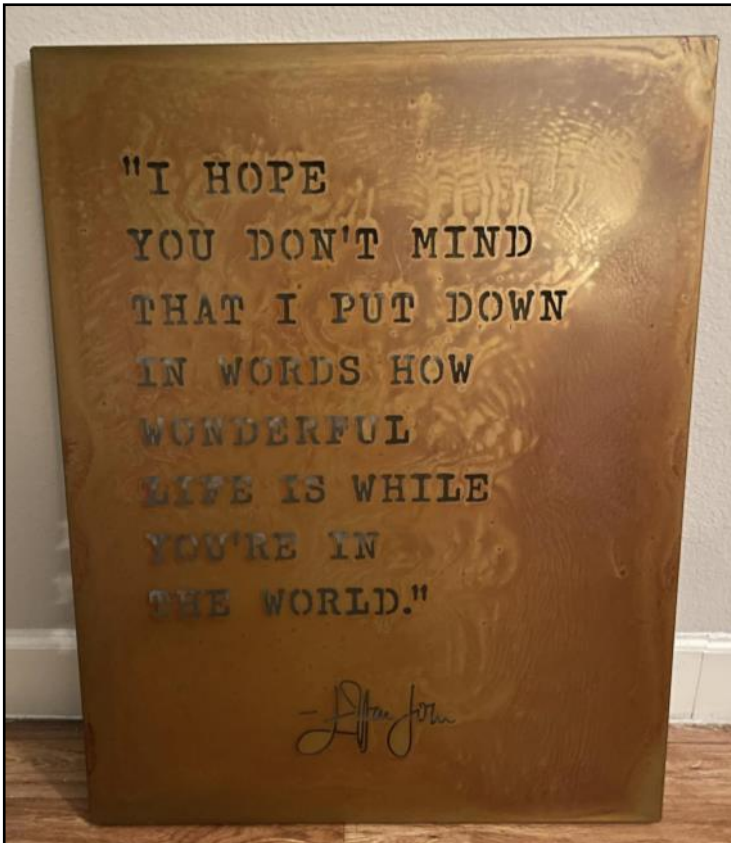 "I HOPE
YOU DON'T MIND
THAT I PUT DOWN
IN WORDS HOW
WONDERFUL
LIFE IS WHILE
YOU'RE IN
THE WORLD."
— Elton John